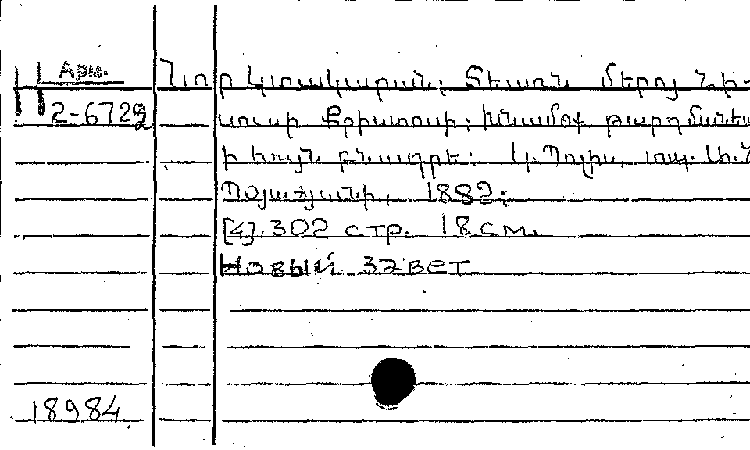 Арм.
Նոր Կտակարան: Տեառն մերոյ Յի-
П
2-6729
սուսի Քրիստոսի: խնամօք թարգմանեալ
ի հոյն բնագրէ: Կ.Պոլիս, տպ.
Պօյաճյանի, 1882:
[4], 302 стр. 18 см.
Новый завет
18984